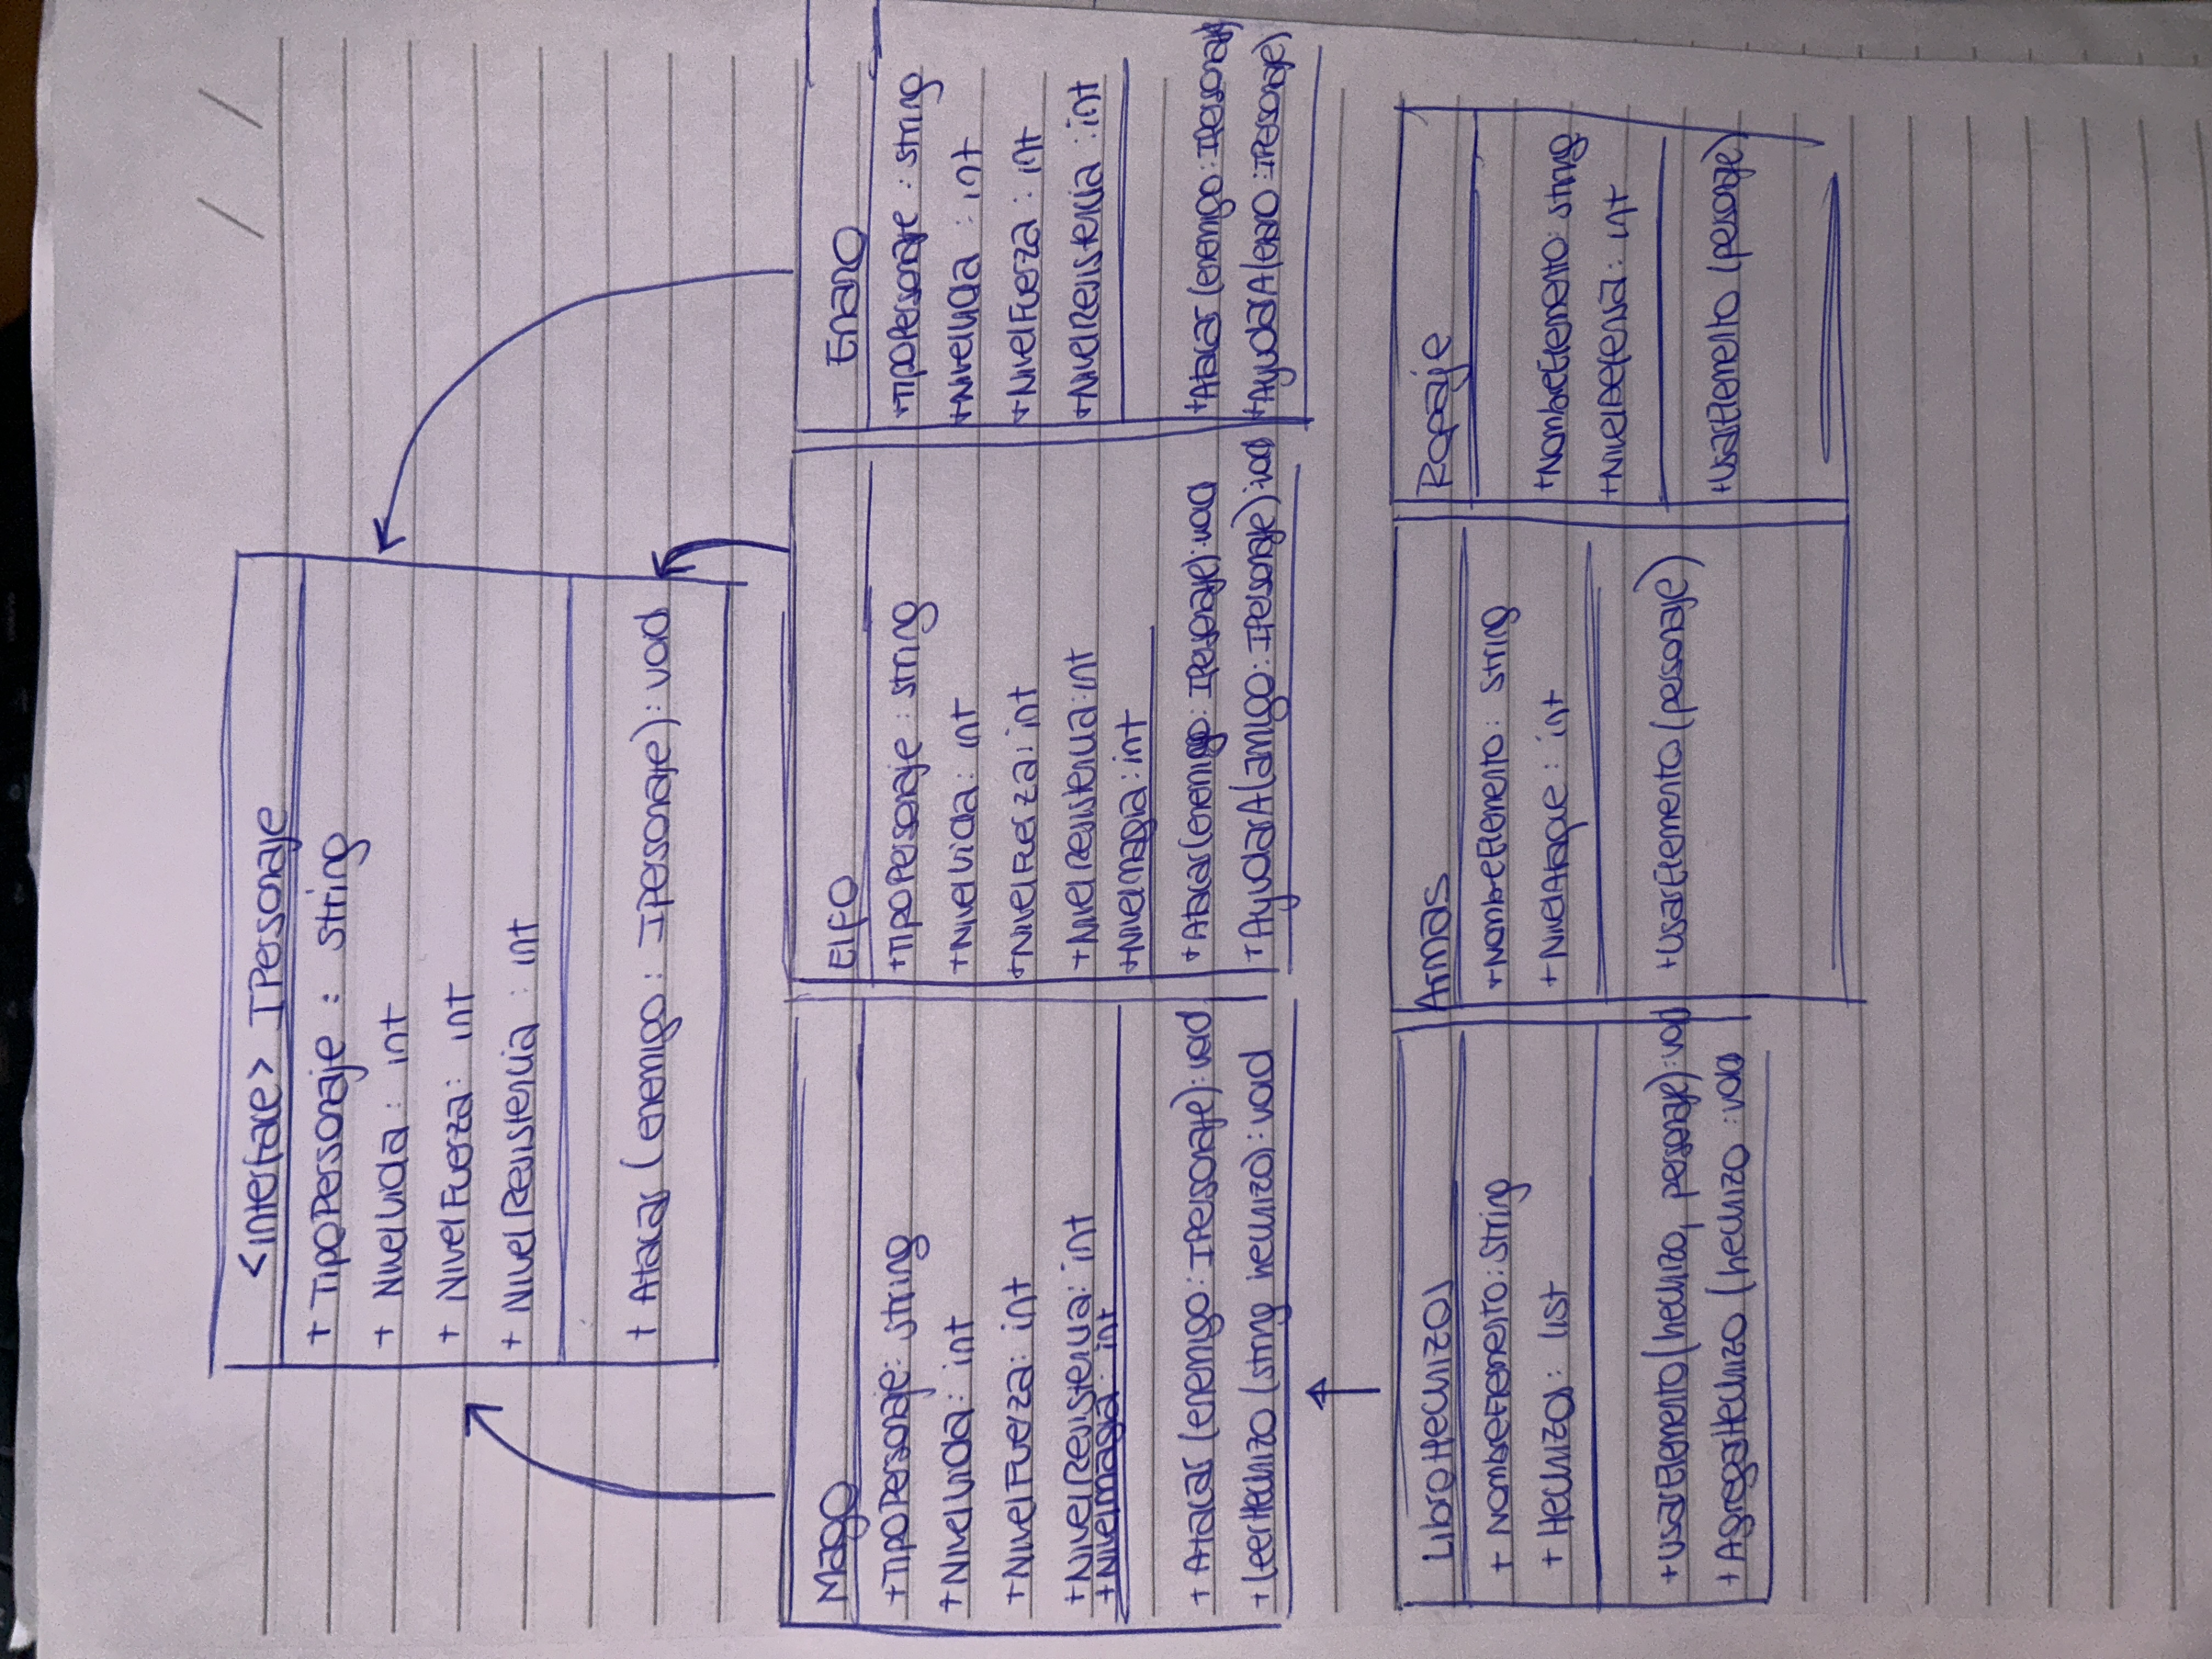 / /
<interface> IPersonaje
+ TipoPersonaje : string
+ NivelVida : int
+ NivelFuerza : int
+ NivelResistencia : int
+ Atacar (enemigo : IPersonaje) : void
Mago
+TipoPersonaje: string
+NivelVida: int
+NivelFuerza: int
+NivelResistencia: int
+NivelMagia: int
+ Atacar (enemigo: IPersonaje): void
+LeerHechizo (string hechizo): void
Elfo
+TipoPersonaje : string
+NivelVida: int
+NivelFuerza: int
+NivelResistencia:int
+NivelMagia: int
+Atacar(enemigo: IPersonaje): void
+AyudarA(amigo: IPersonaje): void
Enano
+TipoPersonaje : string
+NivelVida : int
+NivelFuerza : int
+NivelResistencia : int
+Atacar (enemigo: IPersonaje)
+AyudarA( : IPersonaje)
LibroHechizos
+ NombreElemento: String
+ Hechizos: list
+UsarElemento(hechizo, personaje): void
+AgregarHechizo (hechizo : void
Armas
+NombreElemento: String
+NivelAtaque: int
+UsarElemento (personaje)
Ropaje
+NombreElemento: string
+NivelDefensa: int
+UsarElemento (personaje)